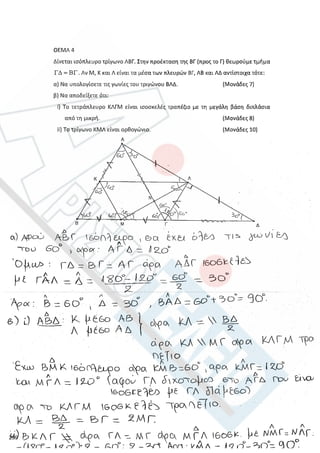 ΘΕΜΑ 4
Δίνεται ισόπλευρο τρίγωνο ΑΒΓ. Στην προέκταση της ΒΓ (προς το Γ) θεωρούμε τμήμα
ΓΔ = ΒΓ. Αν Μ, Κ και Λ είναι τα μέσα των πλευρών ΒΓ, ΑΒ και ΑΔ αντίστοιχα τότε:
α) Να υπολογίσετε τις γωνίες του τριγώνου ΒΑΔ. (Μονάδες 7)
β) Να αποδείξετε ότι:
i) Το τετράπλευρο ΚΛΓΜ είναι ισοσκελές τραπέζιο με τη μεγάλη βάση διπλάσια
από τη μικρή. (Μονάδες 8)
ii) Το τρίγωνο ΚΜΛ είναι ορθογώνιο. (Μονάδες 10)
Α
Κ
Λ
Β
Μ
Γ
Δ
α) Αφού ΑΒΓ ισόπλευρο, θα έχει όλες τις γωνίες
του 60°, άρα: ΑΓΔ = 120°
Όμως: ΓΔ = ΒΓ = ΑΓ άρα ΑΔΓ ισοσκελές
με ΓΑΛ = Δ = 180°-120° / 2 = 60° / 2 = 30°
Άρα: Β = 60°, Δ = 30°, ΒΑΔ = 60°+30° = 90°.
β) i) ΑΒΔ: Κ μέσο ΑΒ
Λ μέσο ΑΔ } άρα ΚΛ = // ΒΔ / 2
άρα ΚΛ // ΜΓ άρα ΚΛΓΜ τρα
πέζιο
Έχω ΒΜΚ ισόπλευρο άρα ΚΜΒ = 60°, άρα ΚΜΓ = 120°
και ΜΓΛ = 120° (αφού ΓΛ διχοτόμος στο ΑΓΔ που είναι
ισοσκελές με ΓΛ διάμεσο)
άρα το ΚΛΓΜ ισοσκελές τραπέζιο.
ΚΛ = ΒΔ / 2 = ΒΓ = 2ΜΓ.
ii) ΒΚΛΓ άρα ΓΛ = ΜΓ άρα ΜΓΛ ισοσκ. με